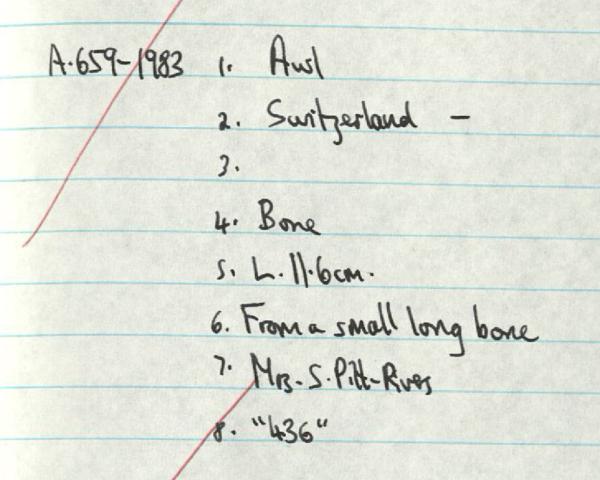 A.659-1983 1. Awl
2. Switzerland -
3.
4. Bone
5. L. 11.6cm.
6. From a small long bone
7. Mrs. S. Pitt-Rivers
8. "436"